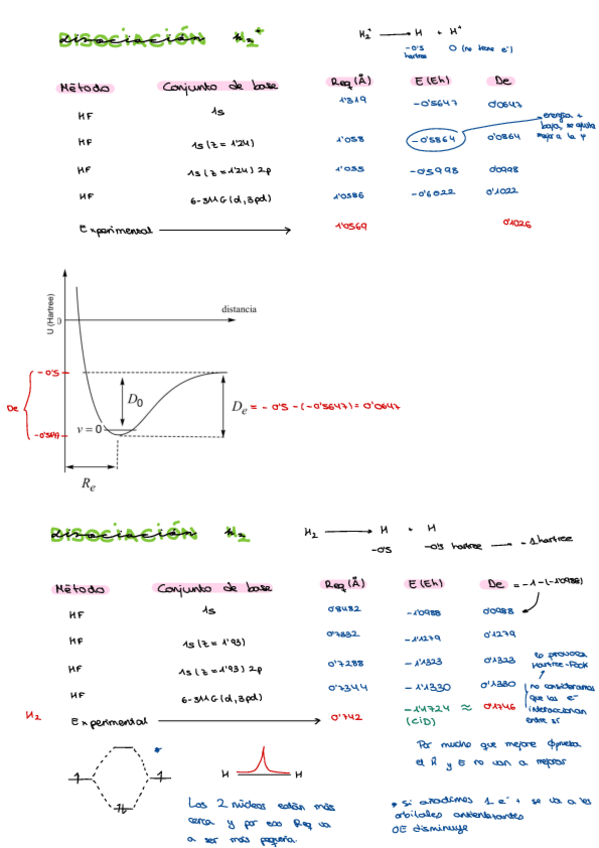 DISOCIACIÓN H₂⁺
H₂⁺ → H + H⁺
-0'5 hartree   0 (no tiene e⁻)
Método   Conjunto de base   Req (Å)   E (Eh)   De
HF   1s   1'319   -0'5647   0'0647
HF   1s (z = 1'24)   1'058   -0'5864   0'0864
energía + baja, se ajusta mejor a la ψ
HF   1s (z = 1'24) 2p   1'055   -0'5998   0'0998
HF   6-311G (d, 3pd)   1'0586   -0'6022   0'1022
Experimental → 1'0569   0'1026
U (Hartree)
0
distancia
-0'5
De
D₀
Dₑ = -0'5 - (-0'5647) = 0'0647
v = 0
-0'5647
Rₑ
DISOCIACIÓN H₂
H₂ → H + H
-0'5   -0'5 hartree → -1 hartree
Método   Conjunto de base   Req (Å)   E (Eh)   De = -1 - (-1'0988)
HF   1s   0'8482   -1'0988   0'0988
HF   1s (z = 1'93)   0'7332   -1'1279   0'1279
HF   1s (z = 1'93) 2p   0'7288   -1'1323   0'1323
lo provoca Hartree-Fock
HF   6-311G (d, 3pd)   0'7344   -1'1330   0'1330
no consideramos que los e⁻ interaccionan entre sí
H₂   Experimental → 0'742   -1'1724 ≈ 0'1746
(CID)
Por mucho que mejore
el R y E no van a mejorar
*
H   H
Los 2 núcleos están más
cerca y por eso Req va
a ser más pequeña.
* Si añadimos 1 e⁻ + se va a los
orbitales antienlazantes
OE disminuye